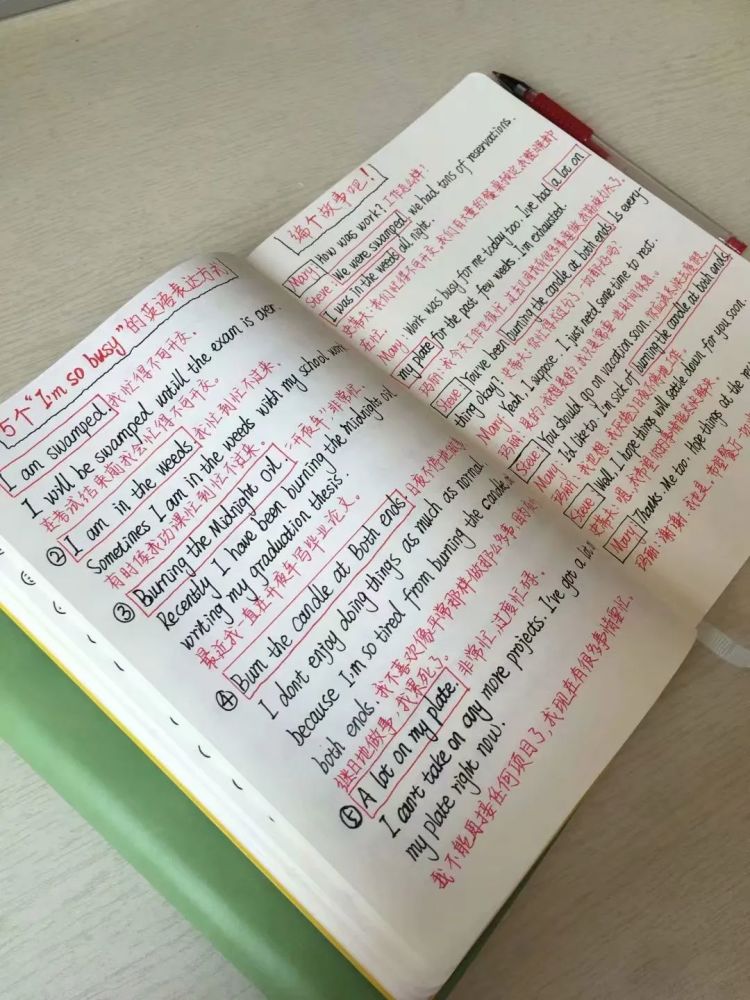 5个"I'm so busy"的英语表达方式
I am swamped. 我忙得不可开交.
I will be swamped untill the exam is over.
在考试结束前我会忙得不可开交.
② I am in the weeds 我忙到忙不过来.
Sometimes I am in the weeds with my school work
有时候我功课忙到忙不过来。
③ Burning the Midnight oil. "开夜车" 非常忙.
Recently I have been burning the midnight oil
writing my graduation thesis.
最近我一直在开夜车写毕业论文。
④ Burn the candle at Both ends
I dont enjoy doing things as much as normal
because I'm so tired from burning the candle at
both ends. 我不喜欢像平常那样做那么多事
继日地做事, 我累死了.
⑤ A lot on my plate. 非常忙, 过度忙碌.
I can't take on any more projects. I've got a lot
my plate right now.
我不能再接任何项目了, 我现在有很多事情要忙.
编个故事吧!
Mary: How was work? 工作怎么样?
Steve: We were swamped, we had tons of reservations.
I was in the weeds all night.
Mary: Work was busy for me today too. I've had a lot on
my plate for the past few weeks. I'm exhausted.
Steve: You've been burning the candle at both ends. Is every-
thing okay?
Mary: Yeah, I suppose. I just need some time to rest.
Steve: You should go on vacation soon.
Mary: I'd like to. I'm sick of burning the candle at both ends
Steve: Well, I hope things will settle down for you soon.
Mary: Thanks. Me too. Hope things at the